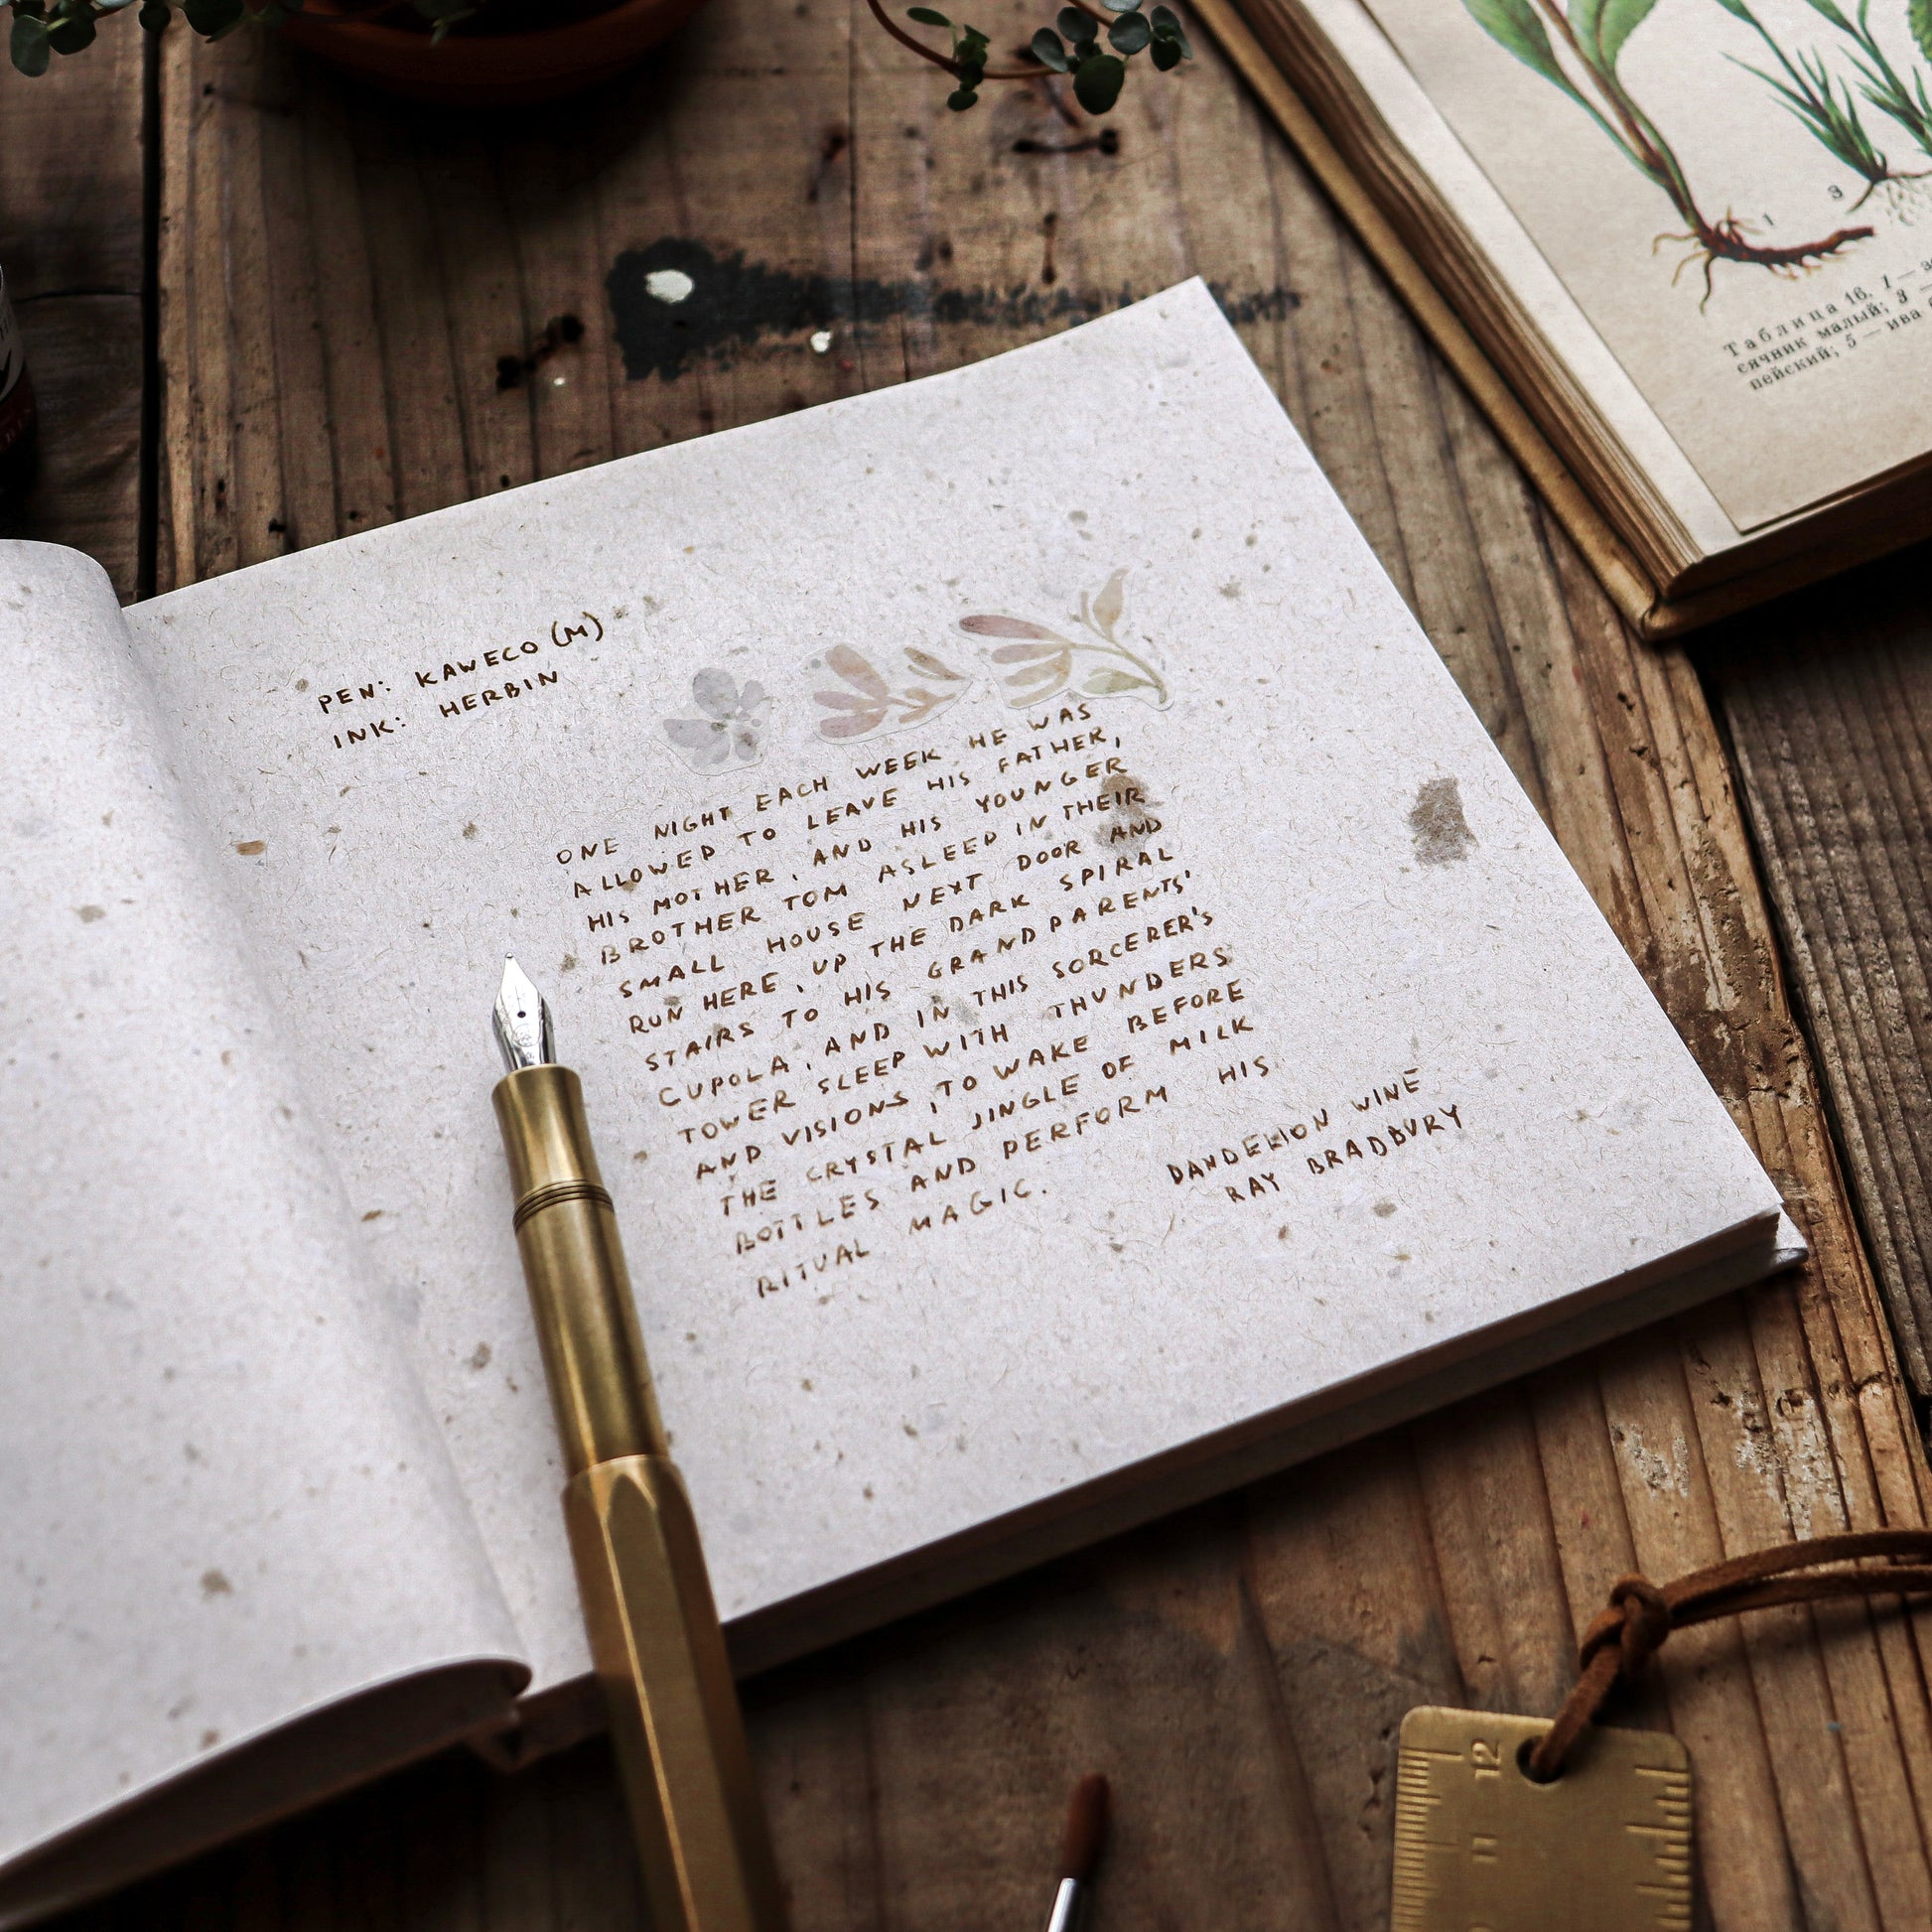 PEN: KAWECO (M)
INK: HERBIN
ONE NIGHT EACH WEEK HE WAS
ALLOWED TO LEAVE HIS FATHER,
HIS MOTHER, AND HIS YOUNGER
BROTHER TOM ASLEEP IN THEIR
SMALL HOUSE NEXT DOOR AND
RUN HERE, UP THE DARK SPIRAL
STAIRS TO HIS GRANDPARENTS'
CUPOLA, AND IN THIS SORCERER'S
TOWER SLEEP WITH THUNDERS
AND VISIONS, TO WAKE BEFORE
THE CRYSTAL JINGLE OF MILK
BOTTLES AND PERFORM HIS
RITUAL MAGIC.
DANDELION WINE
RAY BRADBURY
1
3
Таблица 16. 1 —
сячник малый; 3 —
пейский; 5 — ива
12
11